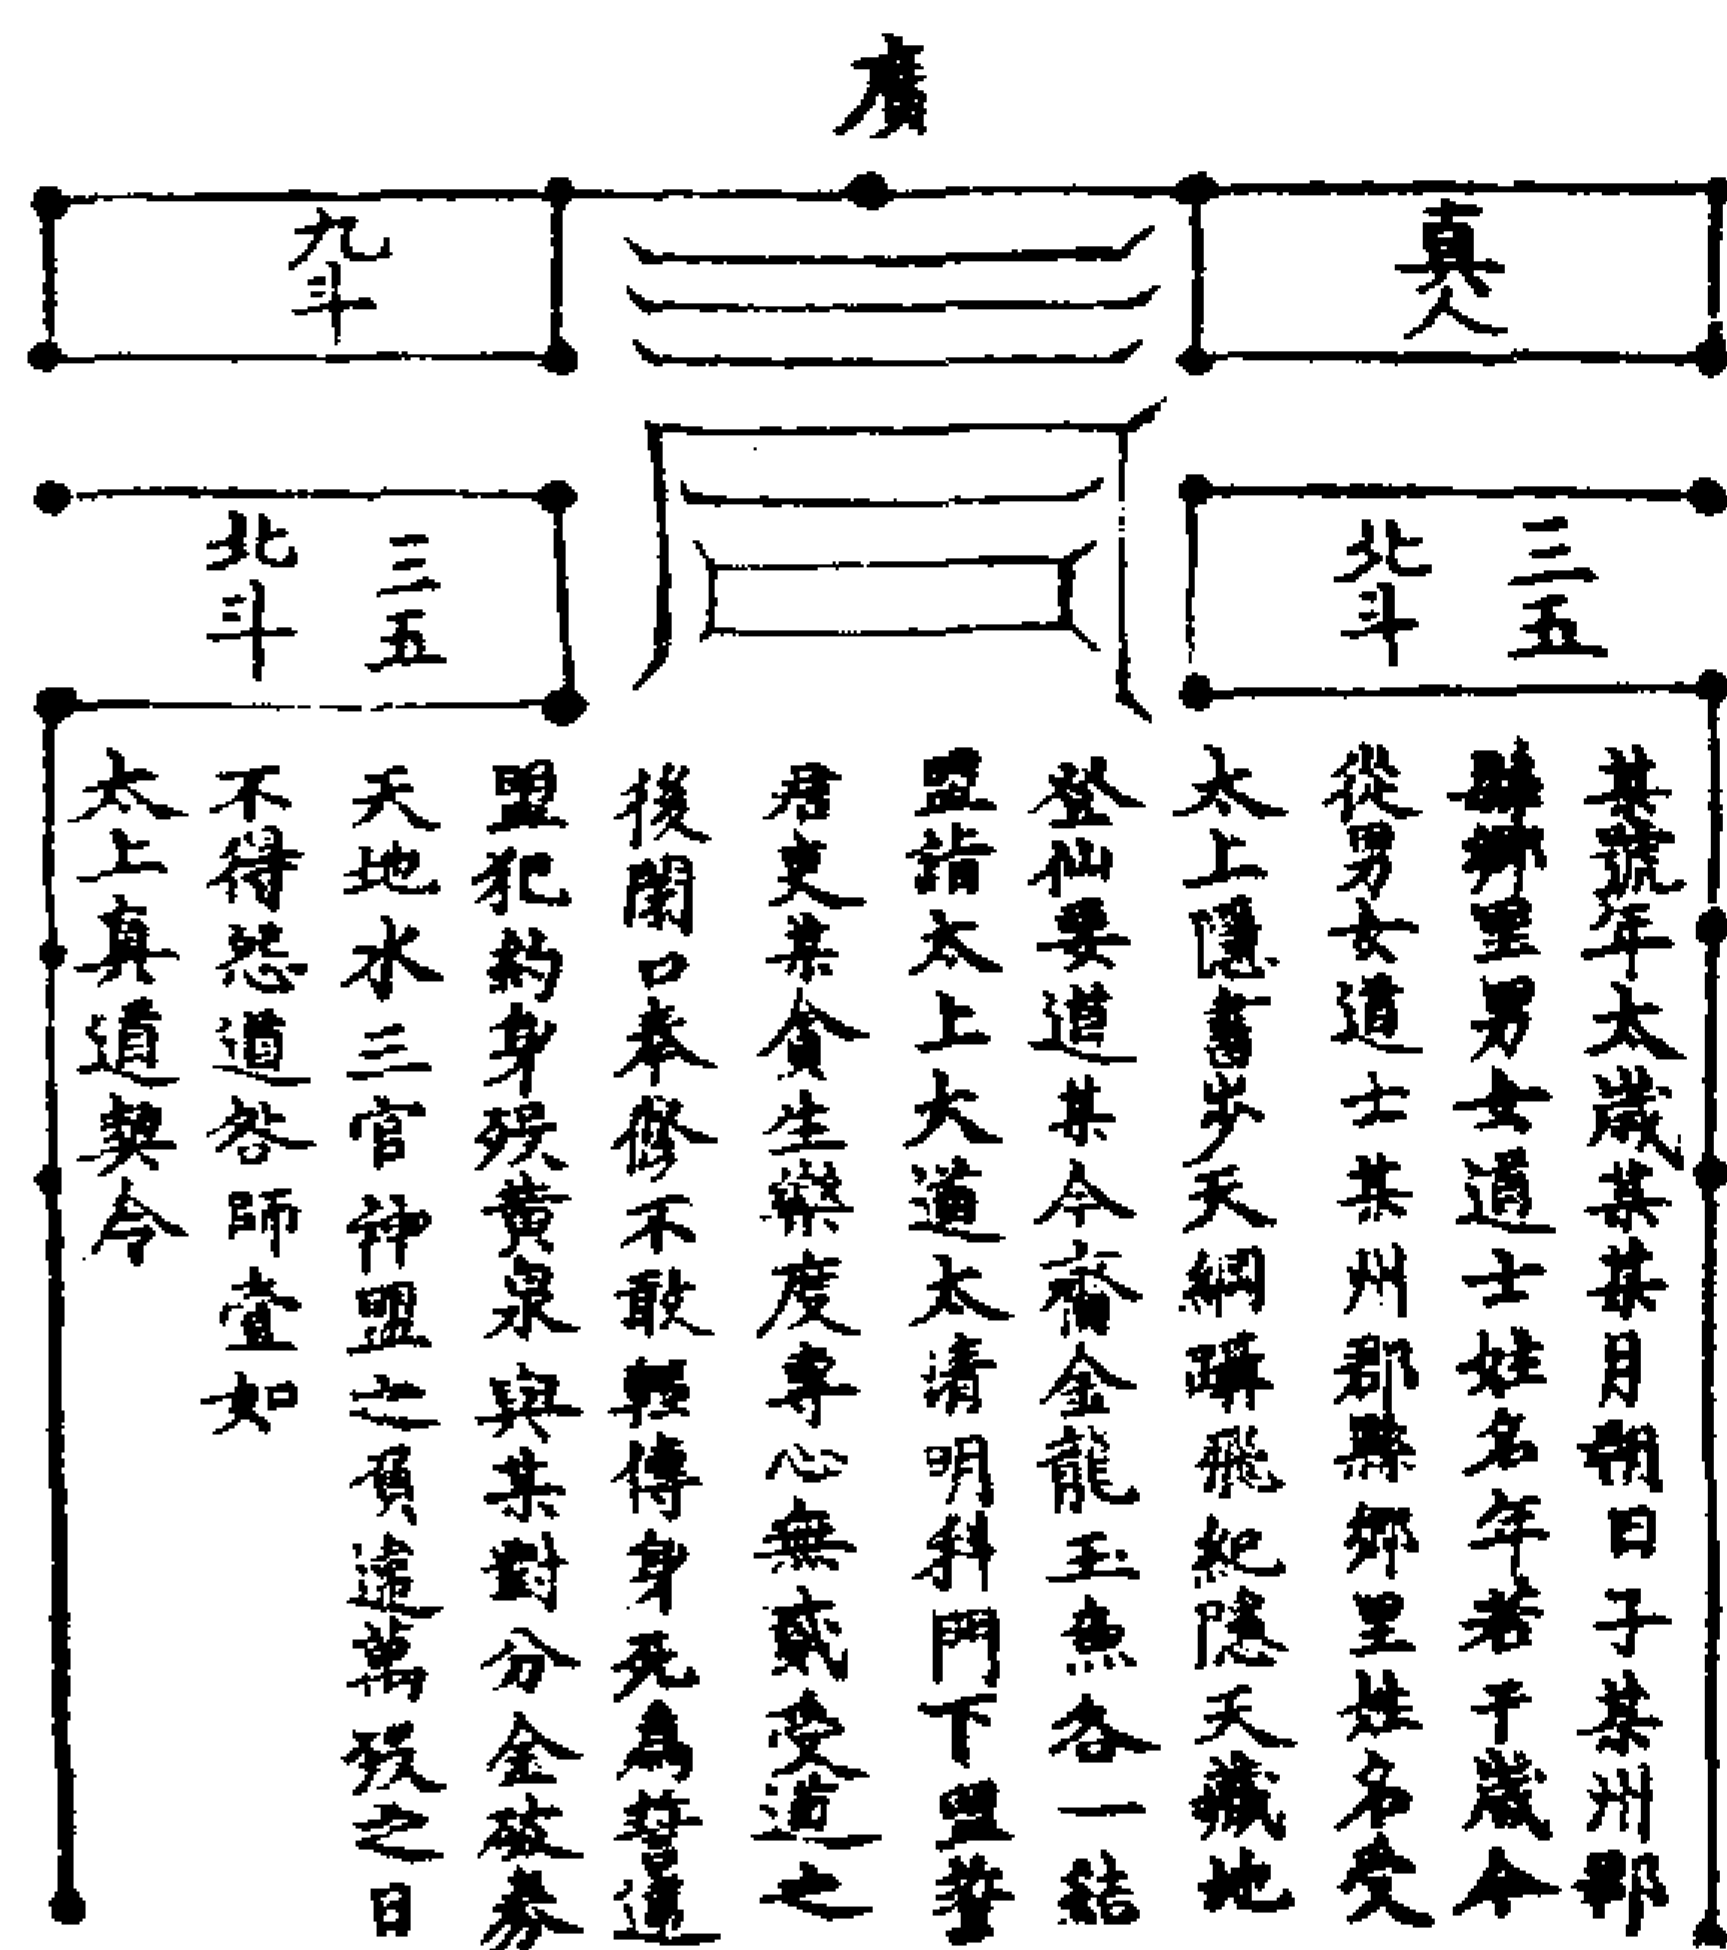 真人
九斗
三五
北斗
三五
北斗
某號年太歲某某月朔日子某州郡
縣鄉里男女道士姓名年若干歲今
從男女道士某州郡縣鄉里姓名受
太上隱書步天綱躡飛紀隱天藏地
登仙要道某今齎金龍玉魚各一結
盟詣太上大道太清明科門下盟誓
君吏某貪生樂度專心無貳受道之
後閉口奉修不敢輕傳身死為誓違
盟犯約身歿黃泉與某對分金破券
天地水三官神盟之負違萬歿之日
不得怨道咎師壹如
太上真道契令